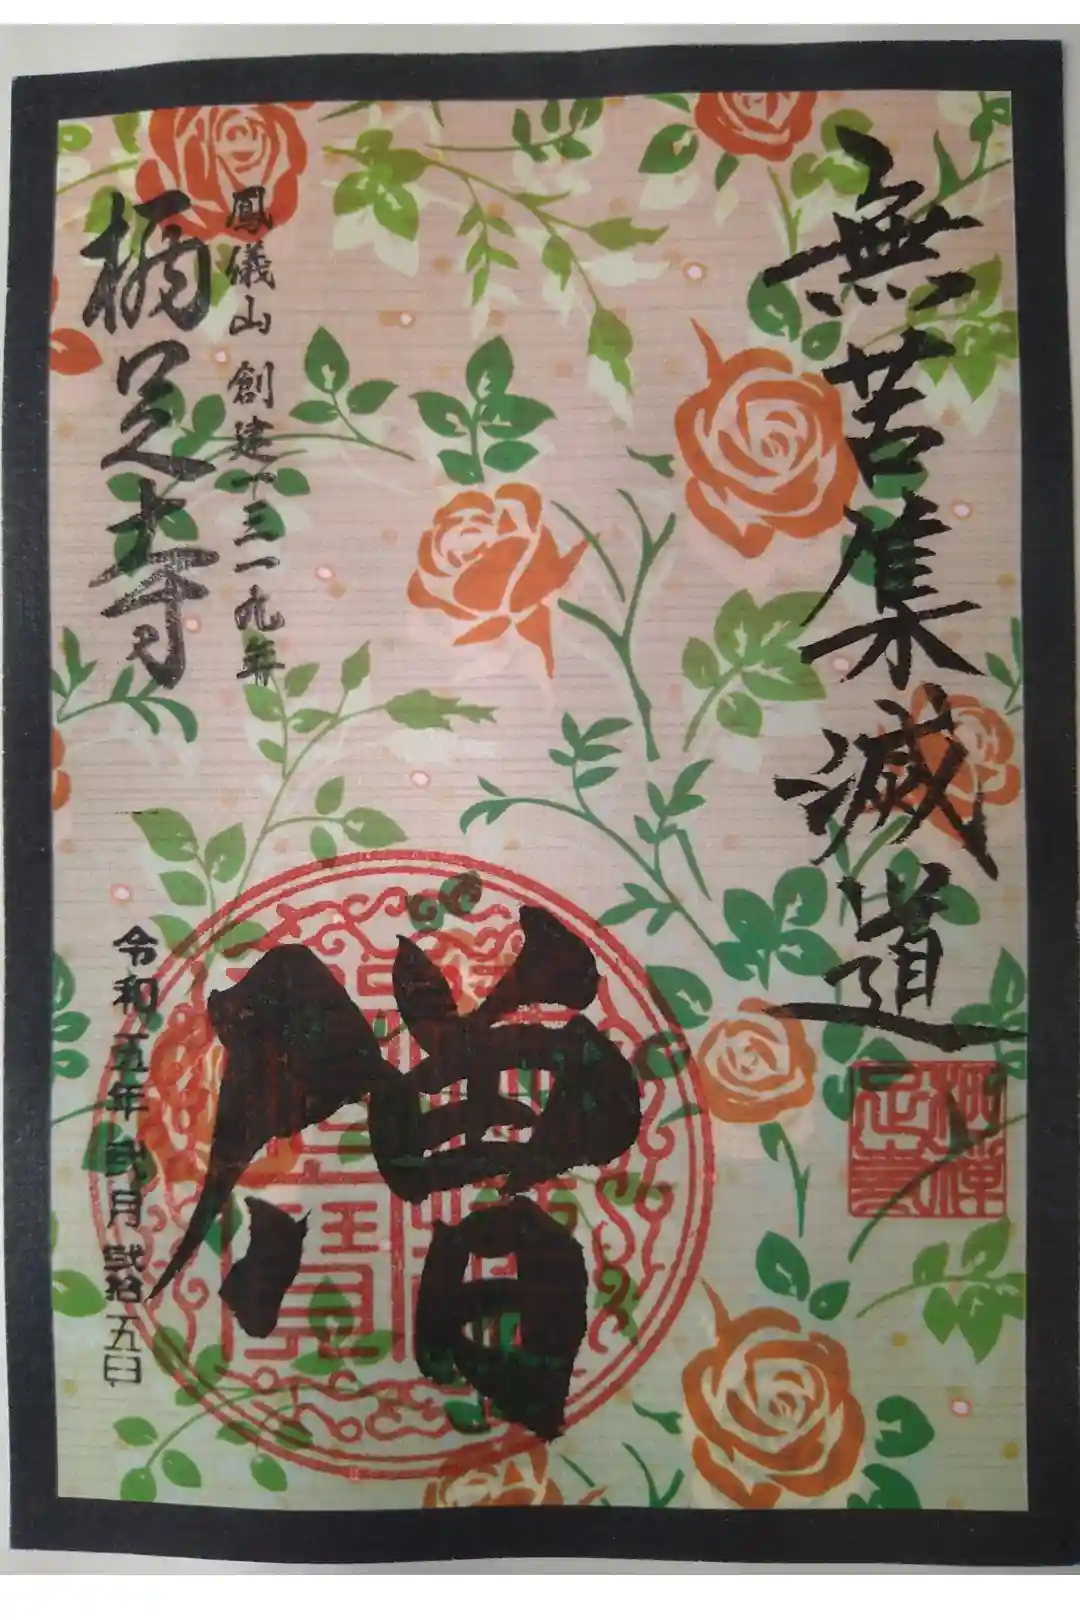 無苦集滅道
僧
鳳儀山 創建一三一九年
栖足寺
令和五年弐月弐拾五日